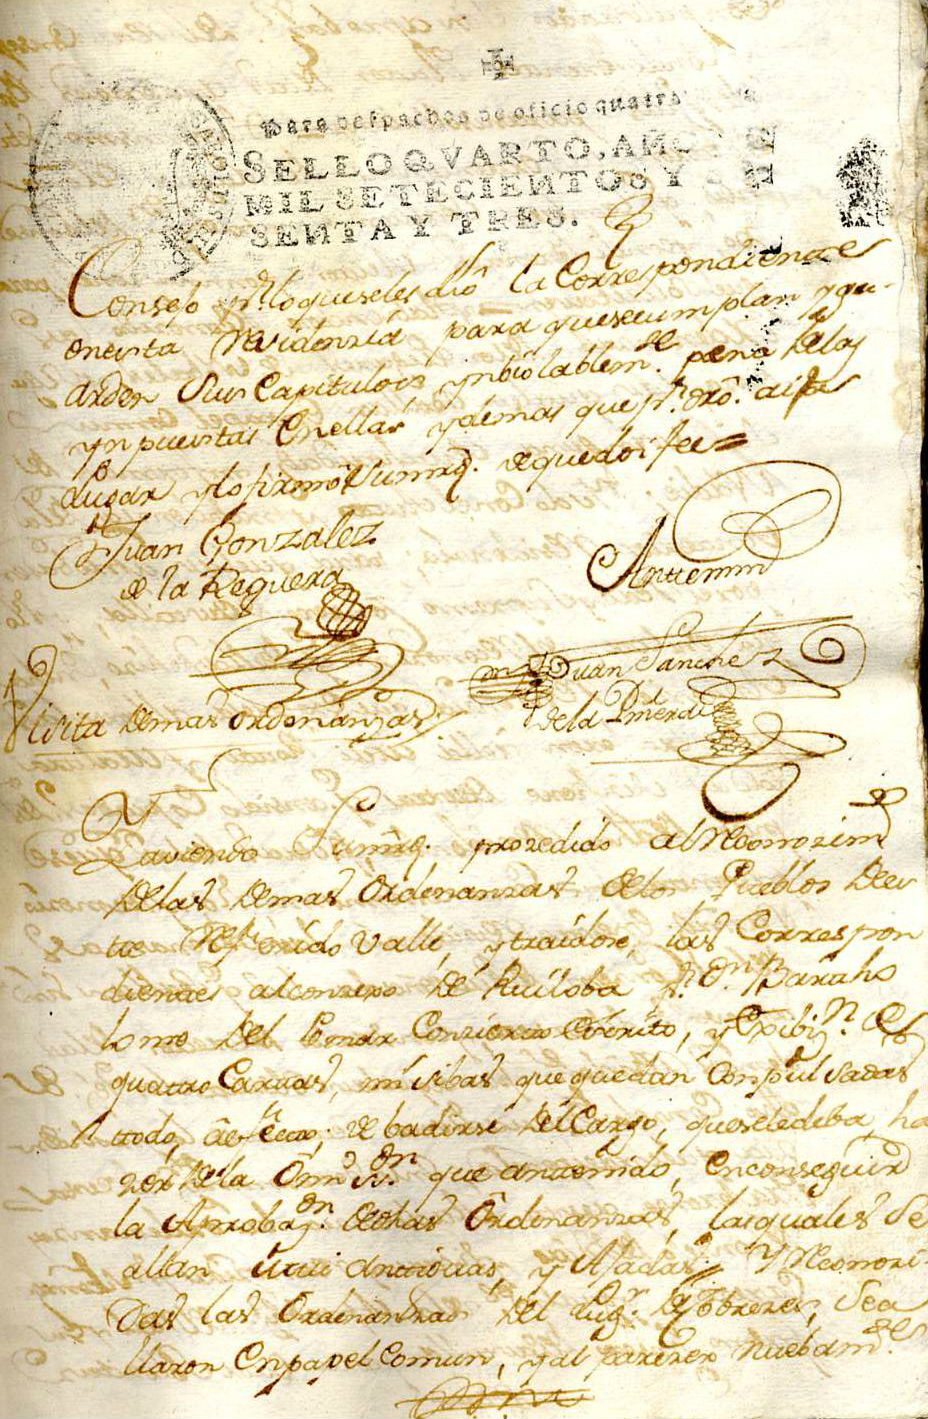 Para despachos de oficio quatro
SELLO QVARTO, AÑO
MIL SETECIENTOS Y
SENTA Y TRES.
Consejo y pr. lo que seles dio la Correspondiente
en esta Residenzia para que se cumplan y gu-
arden Sus Capitulos, ynbiolablemte. pena de las
ynpuestas En ellas y demas que pr. dro. aia
lugar y lo firmó Sumrd. de que doi fee =
Juan Gonzalez
de la Reguera
Antemi
Juan Sanchez
de la
Visita demas ordenanzas.
Haviendo Sumrd. prozedido al Reconozimto
de las demas Ordenanzas de los Pueblos de es
te Referido Valle, y traidose, las Correspon
dientes al conzejo de Ruiloba Pr. Dn. Bartho
lome del Pomar Conzierxo
quatro Cartas, misibas que quedan Conpulsadas
todo, a efecto, de badirse del Cargo, que se le deba, ha
zer de la que an tenido, en conseguir
la Aprobazn. de dhas Ordenanzas, las quales Se
allan mui anttiguas, y Ajadas = Y Reconozi-
das las Ordenanzas del Lugr. de Cobrezes, Sea
llaron En papel Comun, y al parezer nuebamte.